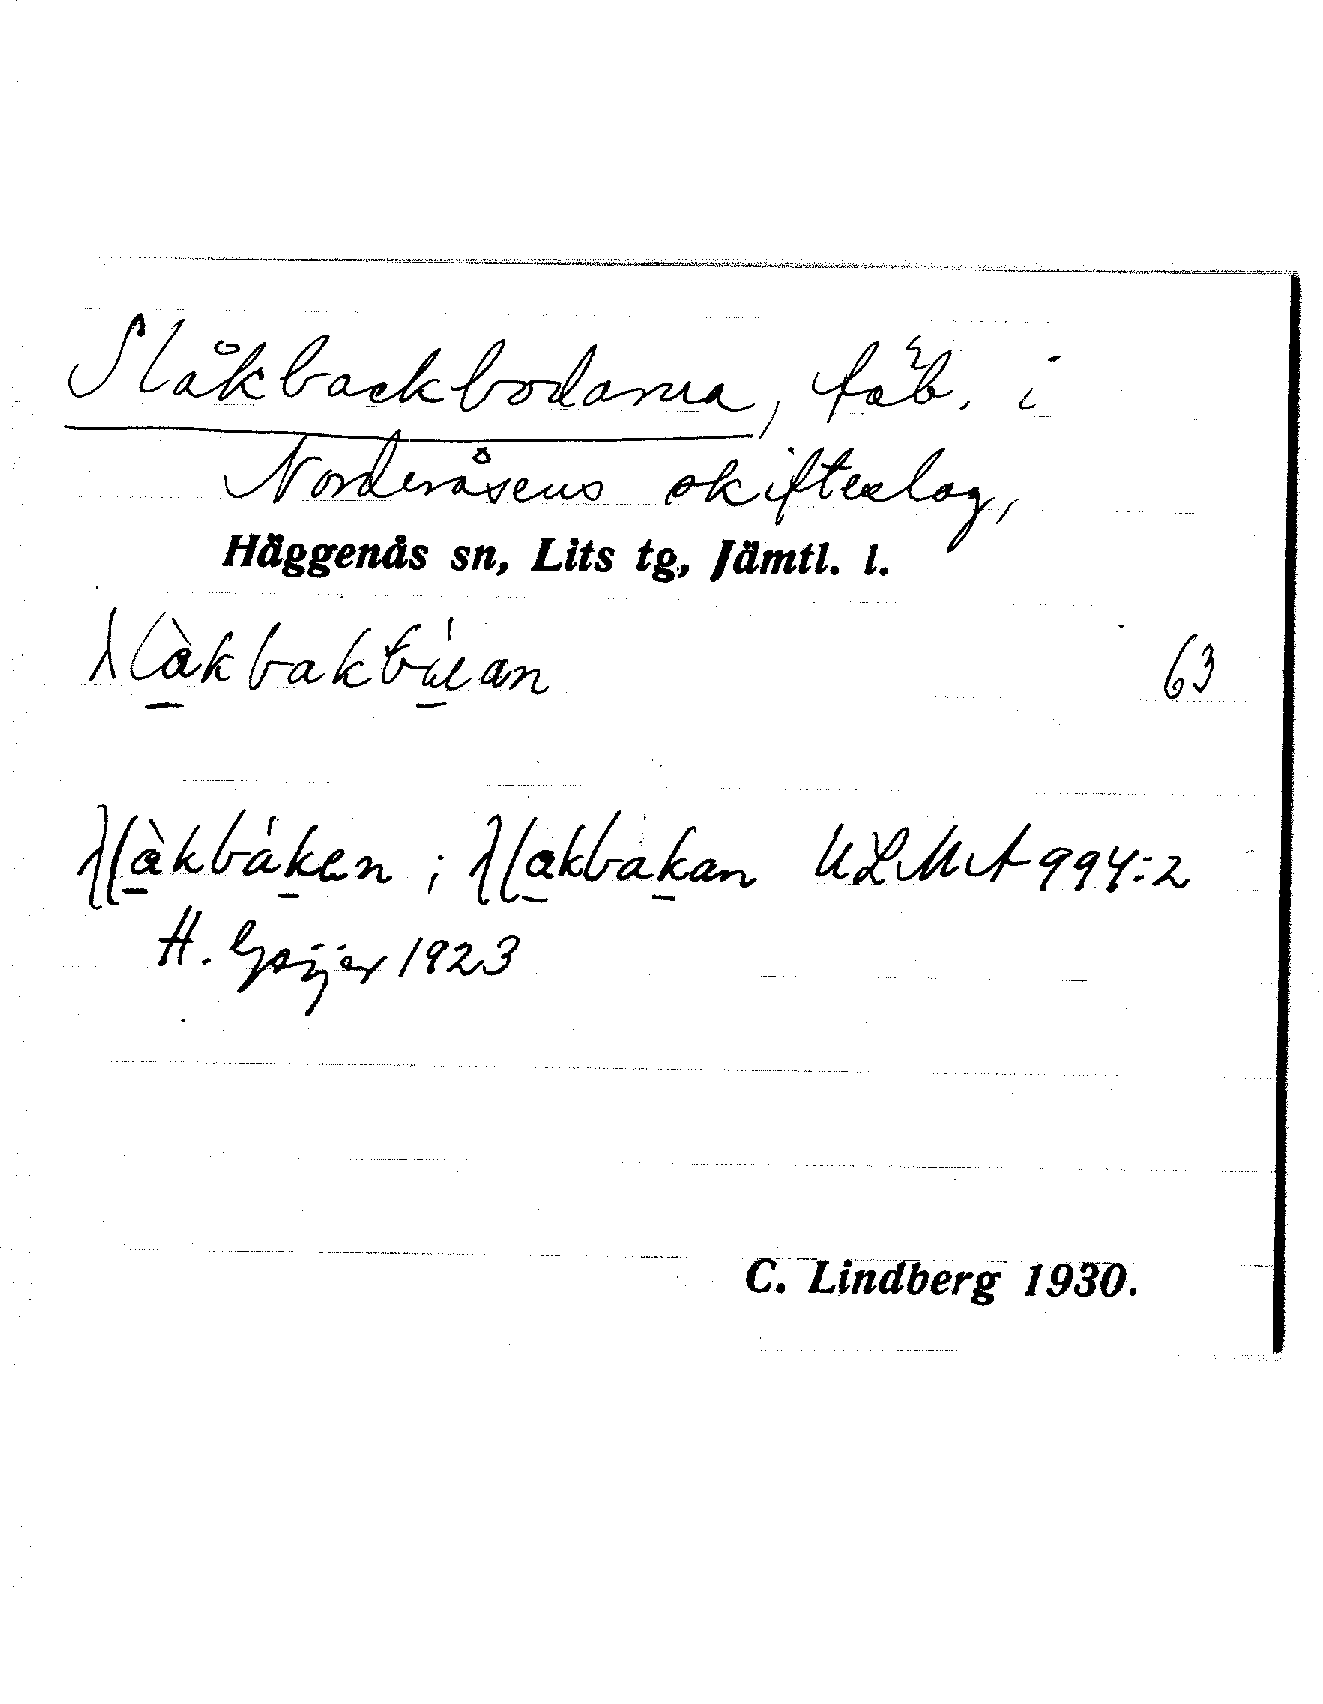 Slåkbackbodarna, fäb. i
Norderåsens skifteslag,
Häggenås sn, Lits tg, Jämtl. l.
63
ULMA 994:2
H. Geijer 1923
C. Lindberg 1930.